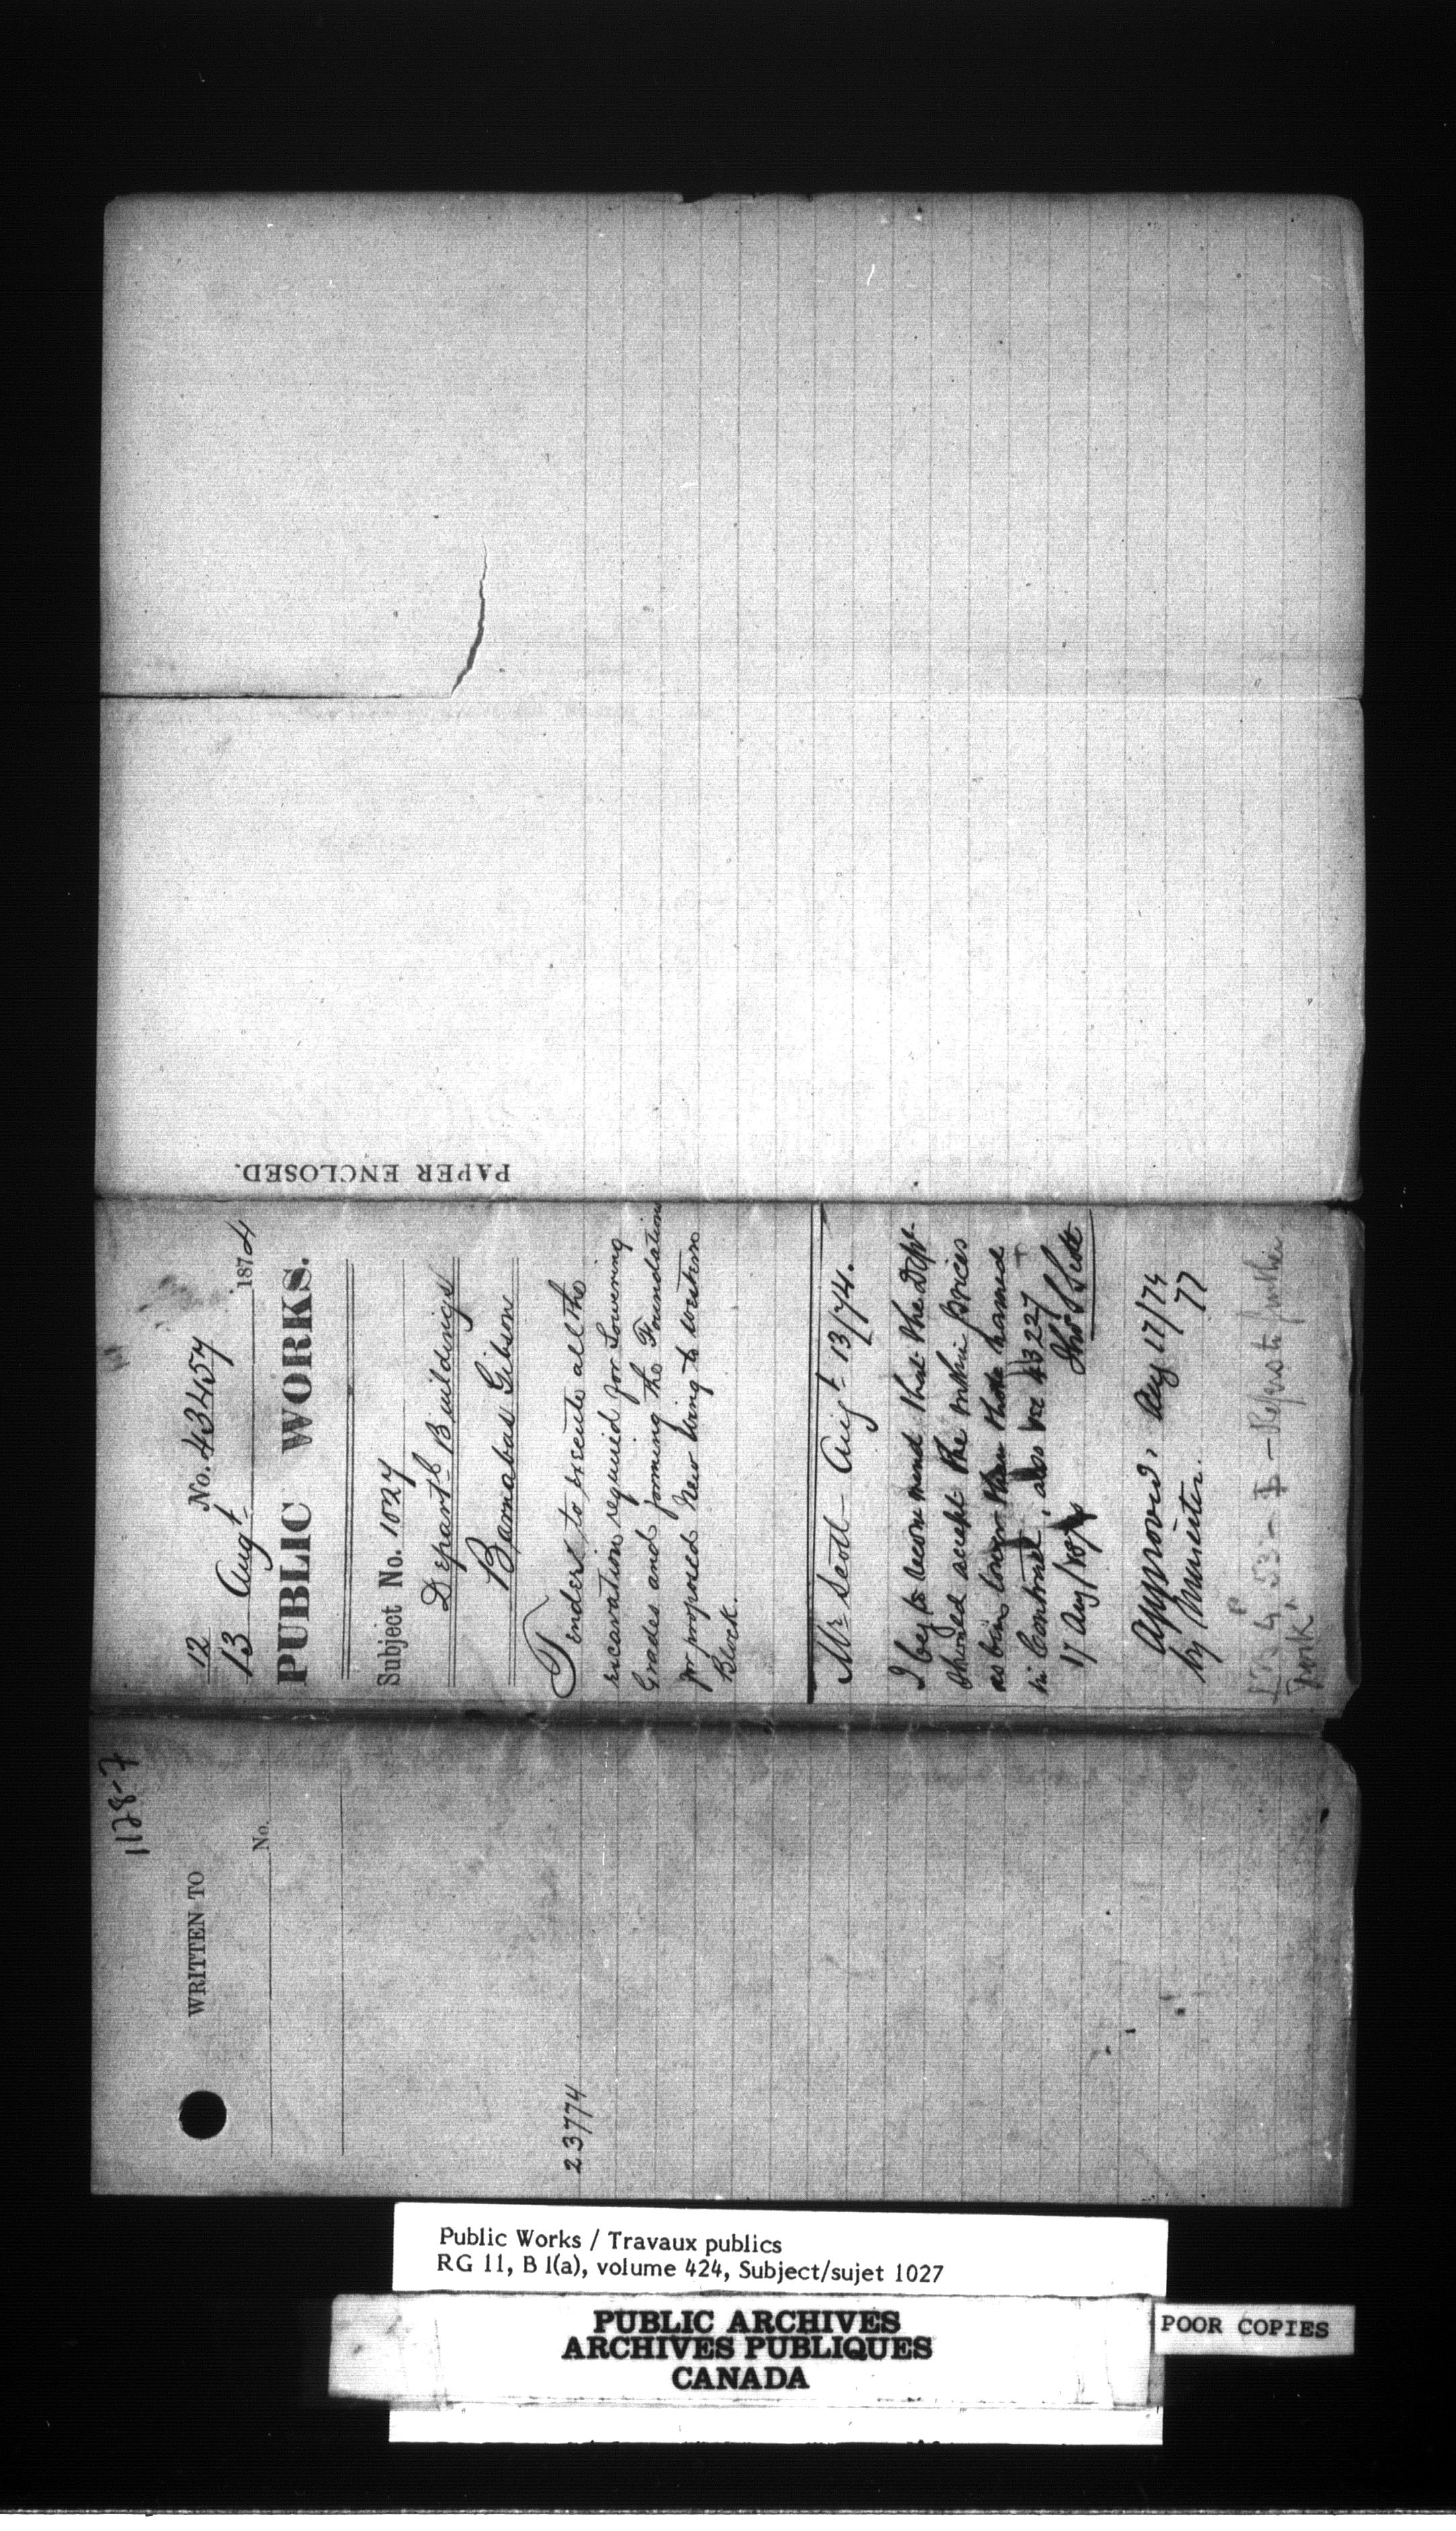 PAPER ENCLOSED.
12
13 Augt 1874
No. 43457
PUBLIC WORKS.
Subject No. 1027
Departl Buildings
Barnabas Gibson
Tenders to execute all the
excavation required for Lowering
Grades and forming the Foundation
for proposed New Wing to Western
Block.
Mr Scott – Augt 13/74.
I beg to recommend that the Dept
should accept the within prices
as being lower than those named
in Contract, also see 43227
17 Aug/1874 Thos S Scott
Approved. Aug 17/74
by Minister. 77
further
work
1128-7
WRITTEN TO
No.
23774
Public Works / Travaux publics
RG 11, B 1(a), volume 424, Subject/sujet 1027
PUBLIC ARCHIVES
ARCHIVES PUBLIQUES
CANADA
POOR COPIES